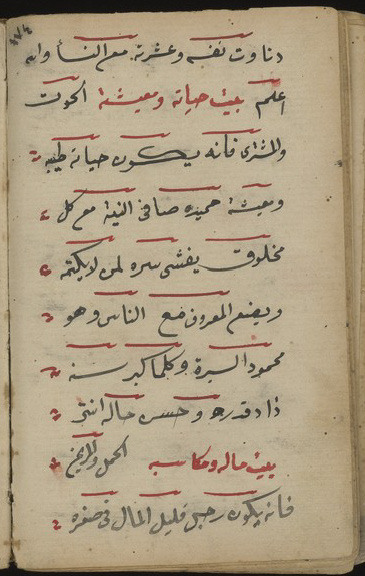 دناوت نفسه وعشرته مع النسا والله
اعلم بيت حياته ومعيشته الحوت
والمشترى فانه يكون حياته طيبه
ومعيشة حميده صافى النية مع كل
مخلوق يفشى سره لمن لا يكتمه
ويضع المعروف مع الناس وهو
محمود السيرة وكلما كبر سنه
زاد قدره وحسن حاله انتهى
بيت ماله ومكاسبه الحمل والمريخ
فانه يكون رحبى قليل المال فى صغره